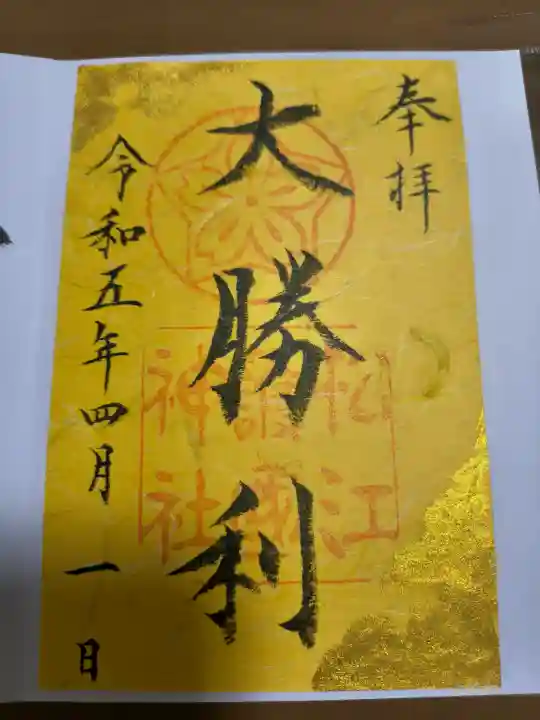 奉拝
大勝利
松江
護國
神社
令和五年四月一日